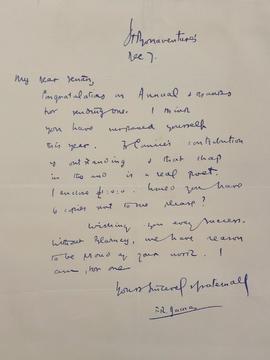 St Bonaventure's
Dec 7.
My dear
Congratulations on Annual & thanks
for sending one. I think
you have surpassed yourself
this year. contribution
is outstanding & that chap
in the end is a real poet.
I enclose Could you have
6 copies sent to me please?
Wishing you every success.
Without Blarney, we have reason
to be proud of your work. I
am, for one
Yours sincerely & fraternally